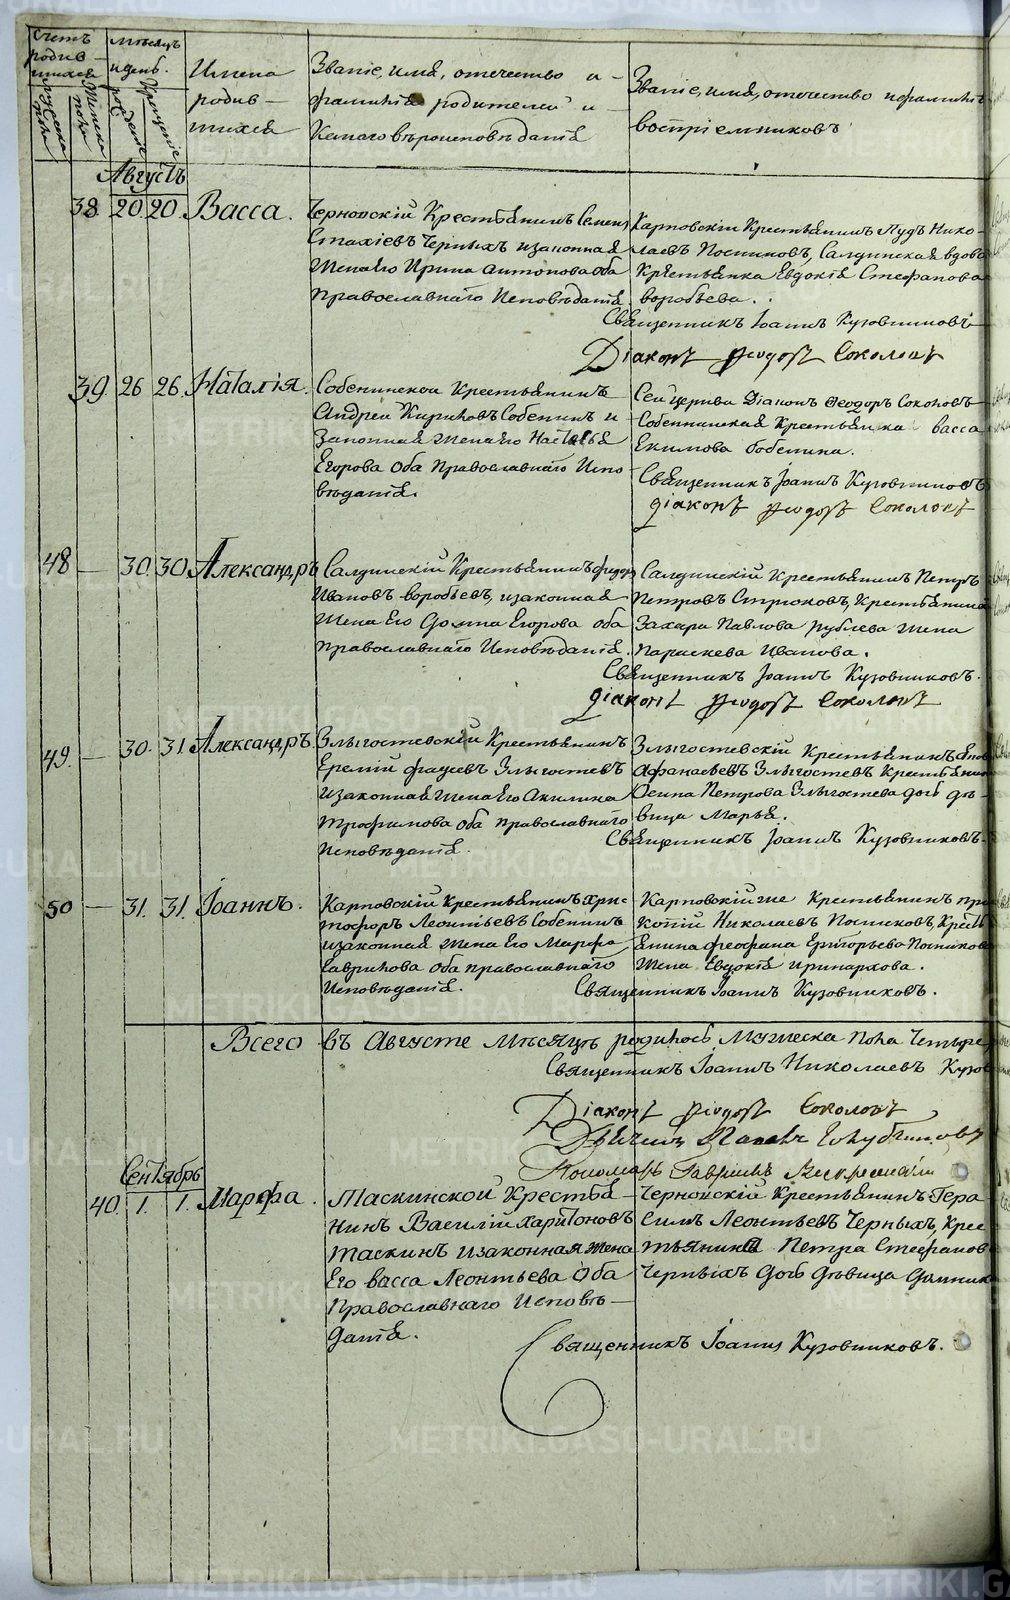 Счетъ родившихся
мужеска пола
женска пола
Мѣсяцъ и день
рожденіе
Крещеніе
Имена родившихся
Званіе, имя, отечество и фамилія родителей и
Какаго вѣроисповѣданія
Званіе, имя, отечество и фамилія
воспріемниковъ
Августъ
38. 20. 20. Васса.
Черновскій Крестьянинъ Семенъ
Стахіевъ Черныхъ изаконная
Жена Его Ирина Антонова оба
православнаго Исповѣданія
Карповскій Крестьянинъ Лудъ Нико-
лаевъ Посниковъ, Салдинская вдова
Крестьянка Евдокія Стефанова
воробьева.
Священникъ Іоаннъ Кузовниковъ
Діаконъ Ѳеодоръ Соколовъ
39. 26 26. Наталія.
Собенинской Крестьянинъ
Андрей Кириловъ Собенинъ и
Законная жена Его Наталья
Егорова Оба Православнаго Испо-
вѣданія.
Сей церкви Діаконъ Ѳеодоръ Соколовъ
Собенинская Крестьянка васса
Екимова Собенина.
Священникъ Іоаннъ Кузовниковъ
діаконъ Ѳеодоръ Соколовъ
48 — 30. 30. Александръ
Салдинскій Крестьянинъ Федоръ
Ивановъ воробьевъ, изаконная
Жена Его Домна Егорова оба
православнаго Исповѣданія.
Салдинскій Крестьянинъ Петръ
Петровъ Стрюковъ, Крестьянина
Захара Павлова Рублева жена
Параскева Иванова.
Священникъ Іоаннъ Кузовниковъ.
діаконъ Ѳеодоръ Соколовъ
49. — 30. 31. Александръ.
Злыгостевскій Крестьянинъ
Еремій фадеевъ Злыгостевъ
изаконная жена Его Акилина
Трофимова оба православнаго
Исповѣданія.
Злыгостевскій Крестьянинъ
Афанасьевъ Злыгостевъ Крестьянина
Осипа Петрова Злыгостева дочь дѣ-
вица Марья.
Священникъ Іоаннъ Кузовниковъ.
50 — 31. 31. Іоаннъ.
Карповскій Крестьянинъ Хрис-
тофоръ Леонтьевъ Собенинъ
изаконная жена Его Марфа
Гаврилова оба православнаго
Исповѣданія.
Карповскій же Крестьянинъ про
копій Николаевъ Посниковъ, Кресть
янина феофана Григорьева Посникова
Жена Евдокія иринархова.
Священникъ Іоаннъ Кузовниковъ.
Всего въ Августе мѣсяцѣ родилось Мужеска пола Четыре
Священникъ Іоаннъ Николаевъ Кузов
Діаконъ Ѳеодоръ Соколовъ
Дьячекъ
Пономарь Гавріилъ
Сентябрь
40. 1. 1. Марѳа.
Таскинской Крестья-
нинъ Василій Харитоновъ
Таскинъ изаконная жена
Его васса Леонтьева Оба
Православнаго Исповѣ-
данія.
Черновскій Крестьянинъ Гера
симъ Леонтьевъ Черныхъ, Крес
тьянина Петра Стефанов
Черныхъ дочь дѣвица Домник
Священникъ Іоаннъ Кузовниковъ.
METRIKI.GASO-URAL.RU